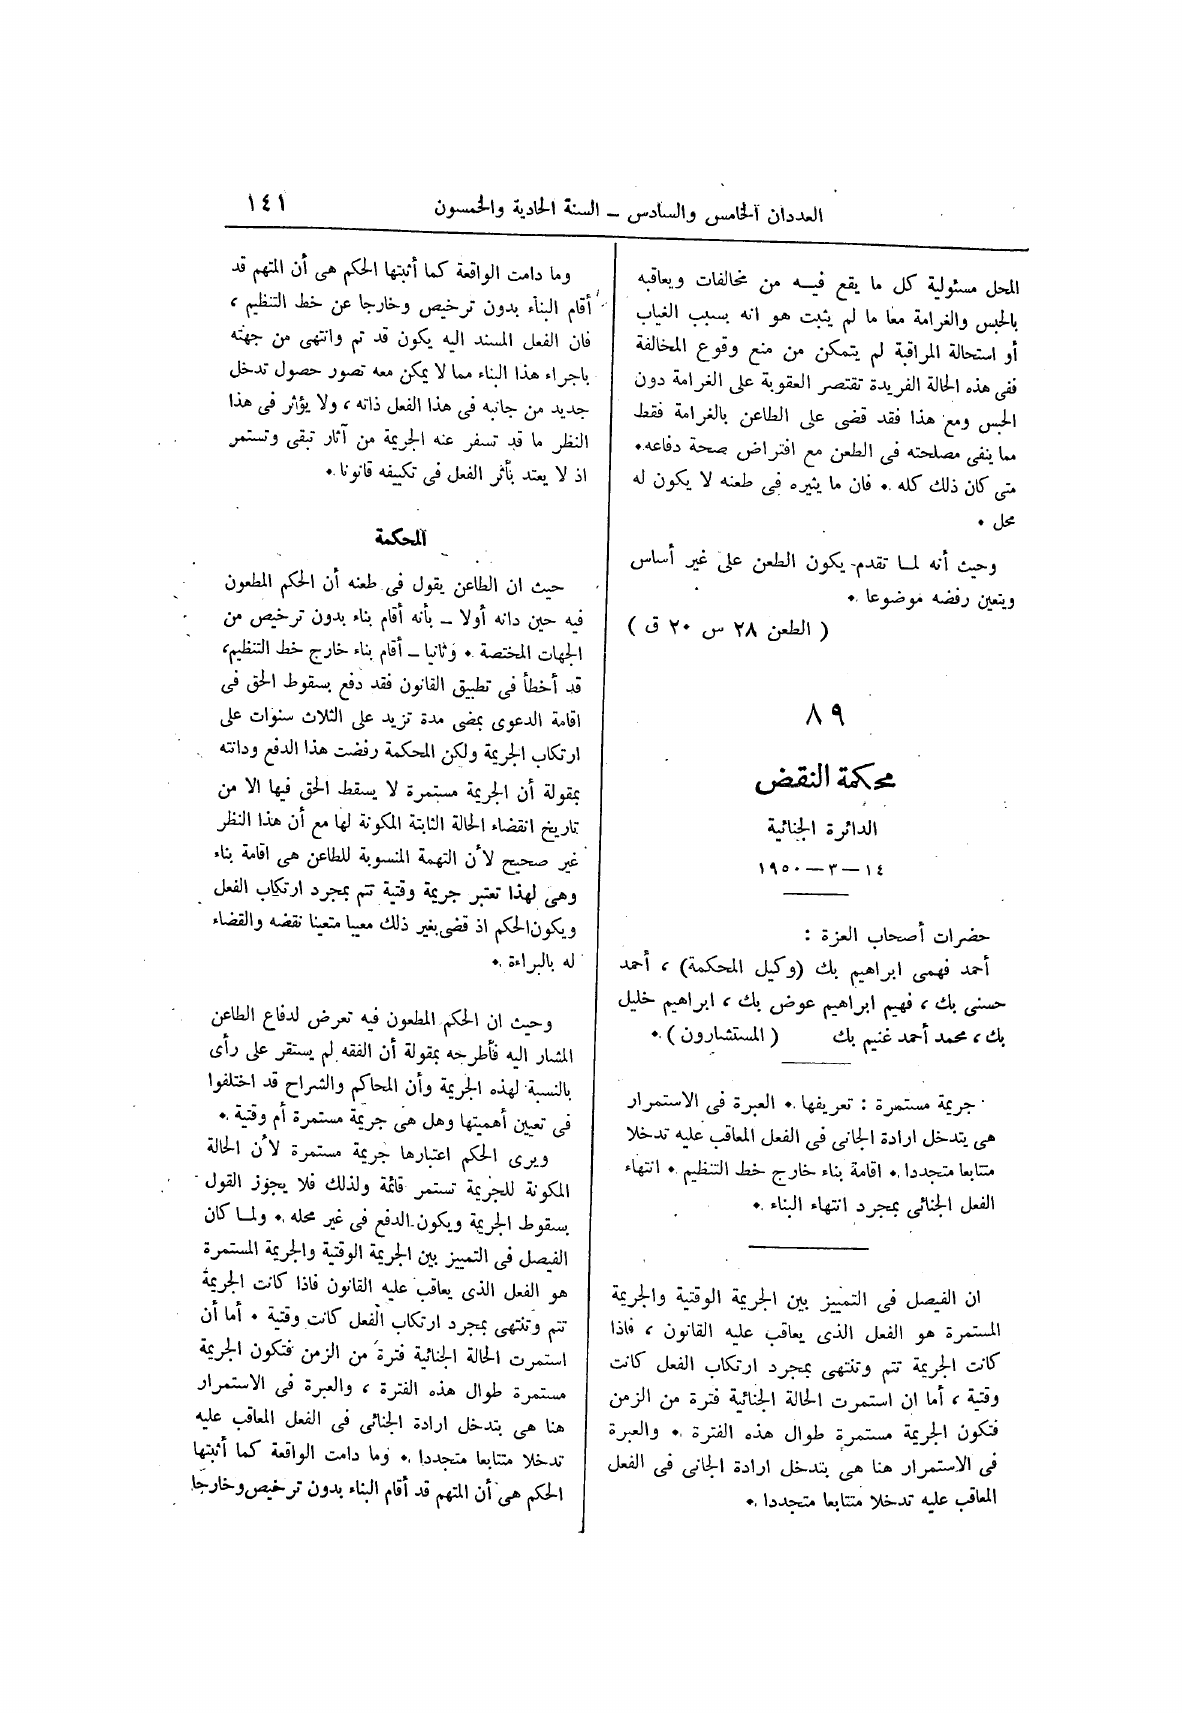 العددان الخامس والسادس – السنة الحادية والخمسون
١٤١
المحل مسئولية كل ما يقع فيه من مخالفات ويعاقبه
بالحبس والغرامة معا ما لم يثبت هو انه بسبب الغياب
أو استحالة المراقبة لم يتمكن من منع وقوع المخالفة
ففى هذه الحالة الفريدة تقتصر العقوبة على الغرامة دون
الحبس ومع هذا فقد قضى على الطاعن بالغرامة فقط
مما ينفى مصلحته فى الطعن مع افتراض صحة دفاعه.
متى كان ذلك كله . فان ما يثيره فى طعنه لا يكون له
محل .
وحيث أنه لما تقدم يكون الطعن على غير أساس
ويتعين رفضه موضوعا .
( الطعن ٢٨ س ٢٠ ق )
٨٩
محكمة النقض
الدائرة الجنائية
١٤ – ٣ – ١٩٥٠
حضرات أصحاب العزة :
أحمد فهمى ابراهيم بك (وكيل المحكمة) ، أحمد
حسنى بك ، فهيم ابراهيم عوض بك ، ابراهيم خليل
بك ، محمد أحمد غنيم بك ( المستشارون ) .
جريمة مستمرة : تعريفها . العبرة فى الاستمرار
هى يتدخل ارادة الجانى فى الفعل المعاقب عليه تدخلا
متتابعا متجددا . اقامة بناء خارج خط التنظيم . انتهاء
الفعل الجنائى بمجرد انتهاء البناء .
ان الفيصل فى التمييز بين الجريمة الوقتية والجريمة
المستمرة هو الفعل الذى يعاقب عليه القانون ، فاذا
كانت الجريمة تتم وتنتهى بمجرد ارتكاب الفعل كانت
وقتية ، أما ان استمرت الحالة الجنائية فترة من الزمن
فتكون الجريمة مستمرة طوال هذه الفترة . والعبرة
فى الاستمرار هنا هى بتدخل ارادة الجانى فى الفعل
المعاقب عليه تدخلا متتابعا متجددا .
وما دامت الواقعة كما أثبتها الحكم هى أن المتهم قد
أقام البناء بدون ترخيص وخارجا عن خط التنظيم ،
فان الفعل المسند اليه يكون قد تم وانتهى من جهته
باجراء هذا البناء مما لا يمكن معه تصور حصول تدخل
جديد من جانبه فى هذا الفعل ذاته ، ولا يؤثر فى هذا
النظر ما قد تسفر عنه الجريمة من آثار تبقى وتستمر
اذ لا يعتد بأثر الفعل فى تكييفه قانونا .
المحكمة
حيث ان الطاعن يقول فى طعنه أن الحكم المطعون
فيه حين دانه أولا – بأنه أقام بناء بدون ترخيص من
الجهات المختصة . وثانيا – أقام بناء خارج خط التنظيم،
قد أخطأ فى تطبيق القانون فقد دفع بسقوط الحق فى
اقامة الدعوى بمضى مدة تزيد على الثلاث سنوات على
ارتكاب الجريمة ولكن المحكمة رفضت هذا الدفع ودانته
بمقولة أن الجريمة مستمرة لا يسقط الحق فيها الا من
تاريخ انقضاء الحالة الثابتة المكونة لها مع أن هذا النظر
غير صحيح لأن التهمة المنسوبة للطاعن هى اقامة بناء
وهى لهذا تعتبر جريمة وقتية تتم بمجرد ارتكاب الفعل
ويكون الحكم اذ قضى بغير ذلك معيبا متعينا نقضه والقضاء
له بالبراءة .
وحيث ان الحكم المطعون فيه تعرض لدفاع الطاعن
المشار اليه فأطرحه بمقولة أن الفقه لم يستقر على رأى
بالنسبة لهذه الجريمة وأن المحاكم والشراح قد اختلفوا
فى تعيين أهميتها وهل هى جريمة مستمرة أم وقتية .
ويرى الحكم اعتبارها جريمة مستمرة لأن الحالة
المكونة للجريمة تستمر قائمة ولذلك فلا يجوز القول
بسقوط الجريمة ويكون الدفع فى غير محله . ولما كان
الفيصل فى التمييز بين الجريمة الوقتية والجريمة المستمرة
هو الفعل الذى يعاقب عليه القانون فاذا كانت الجريمة
تتم وتنتهى بمجرد ارتكاب الفعل كانت وقتية . أما أن
استمرت الحالة الجنائية فترة من الزمن فتكون الجريمة
مستمرة طوال هذه الفترة ، والعبرة فى الاستمرار
هنا هى بتدخل ارادة الجنائى فى الفعل المعاقب عليه
تدخلا متتابعا متجددا . وما دامت الواقعة كما أثبتها
الحكم هى أن المتهم قد أقام البناء بدون ترخيص وخارجا